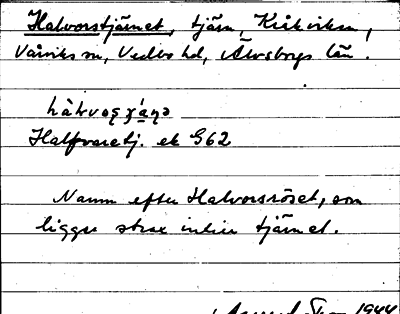 Halvorstjärnet, tjärn, Kråkviken,
Vårviks sn, Vedbo hd, Älvsborgs län.
Halfvaretj. ek G62
Namn efter Halvorsröset, som
ligger strax intill tjärnet.
1944